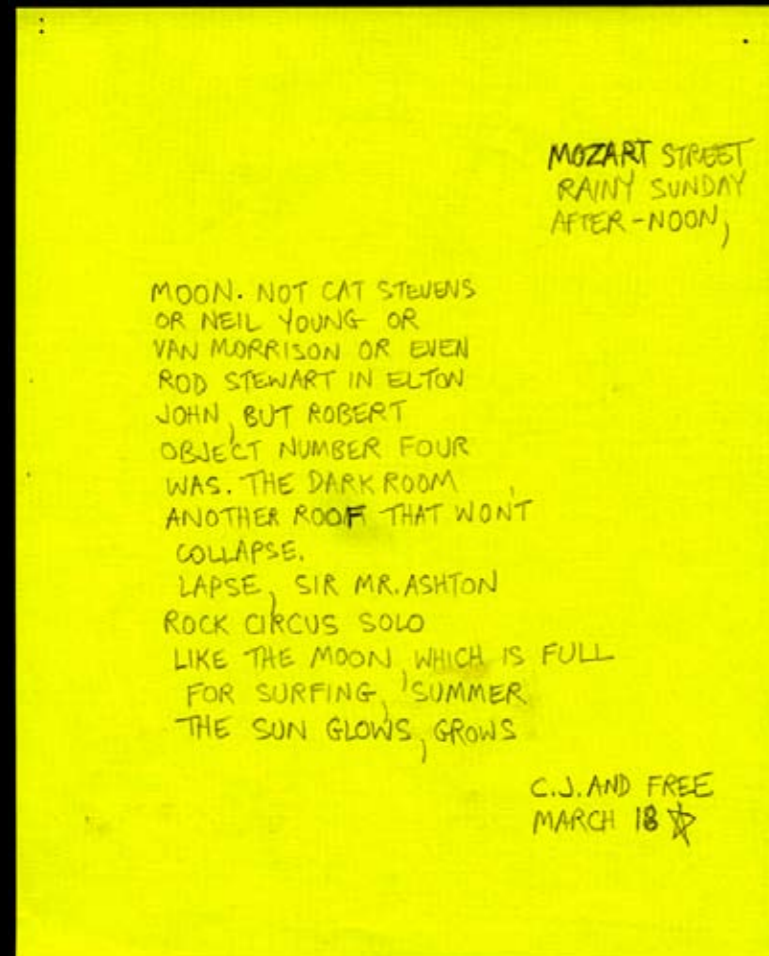 MOZART STREET
RAINY SUNDAY
AFTER-NOON,
MOON. NOT CAT STEVENS
OR NEIL YOUNG OR
VAN MORRISON OR EVEN
ROD STEWART IN ELTON
JOHN, BUT ROBERT
OBJECT NUMBER FOUR
WAS. THE DARK ROOM
ANOTHER ROOF THAT WON'T
COLLAPSE.
LAPSE, SIR MR. ASHTON
ROCK CIRCUS SOLO
LIKE THE MOON, WHICH IS FULL
FOR SURFING, SUMMER
THE SUN GLOWS, GROWS
C.J. AND FREE
MARCH 18